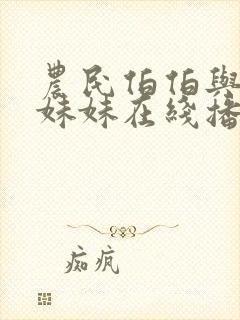 農民伯伯與
妹妹在綫播
痴疯